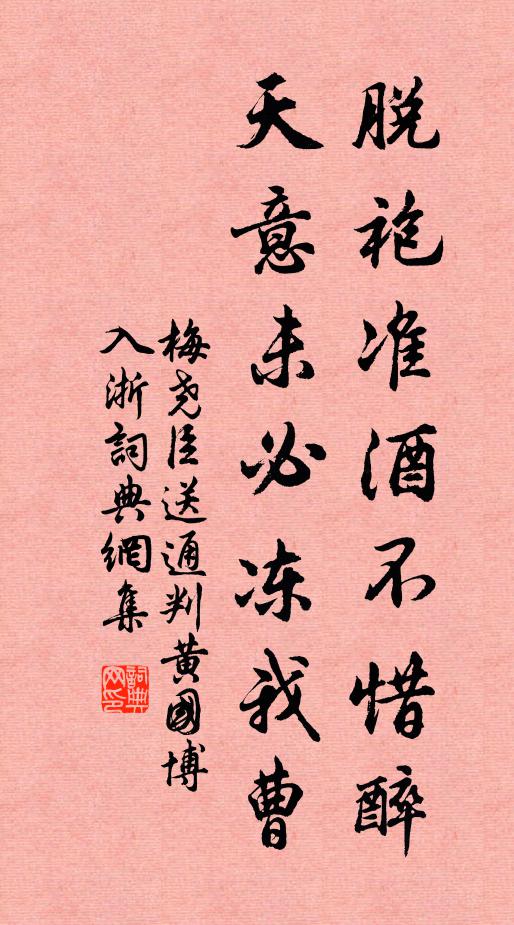 脱袍准酒不惜醉
天意未必冻我曹
梅尧臣送通判黄國博
入浙詞典網集
詞典
网印